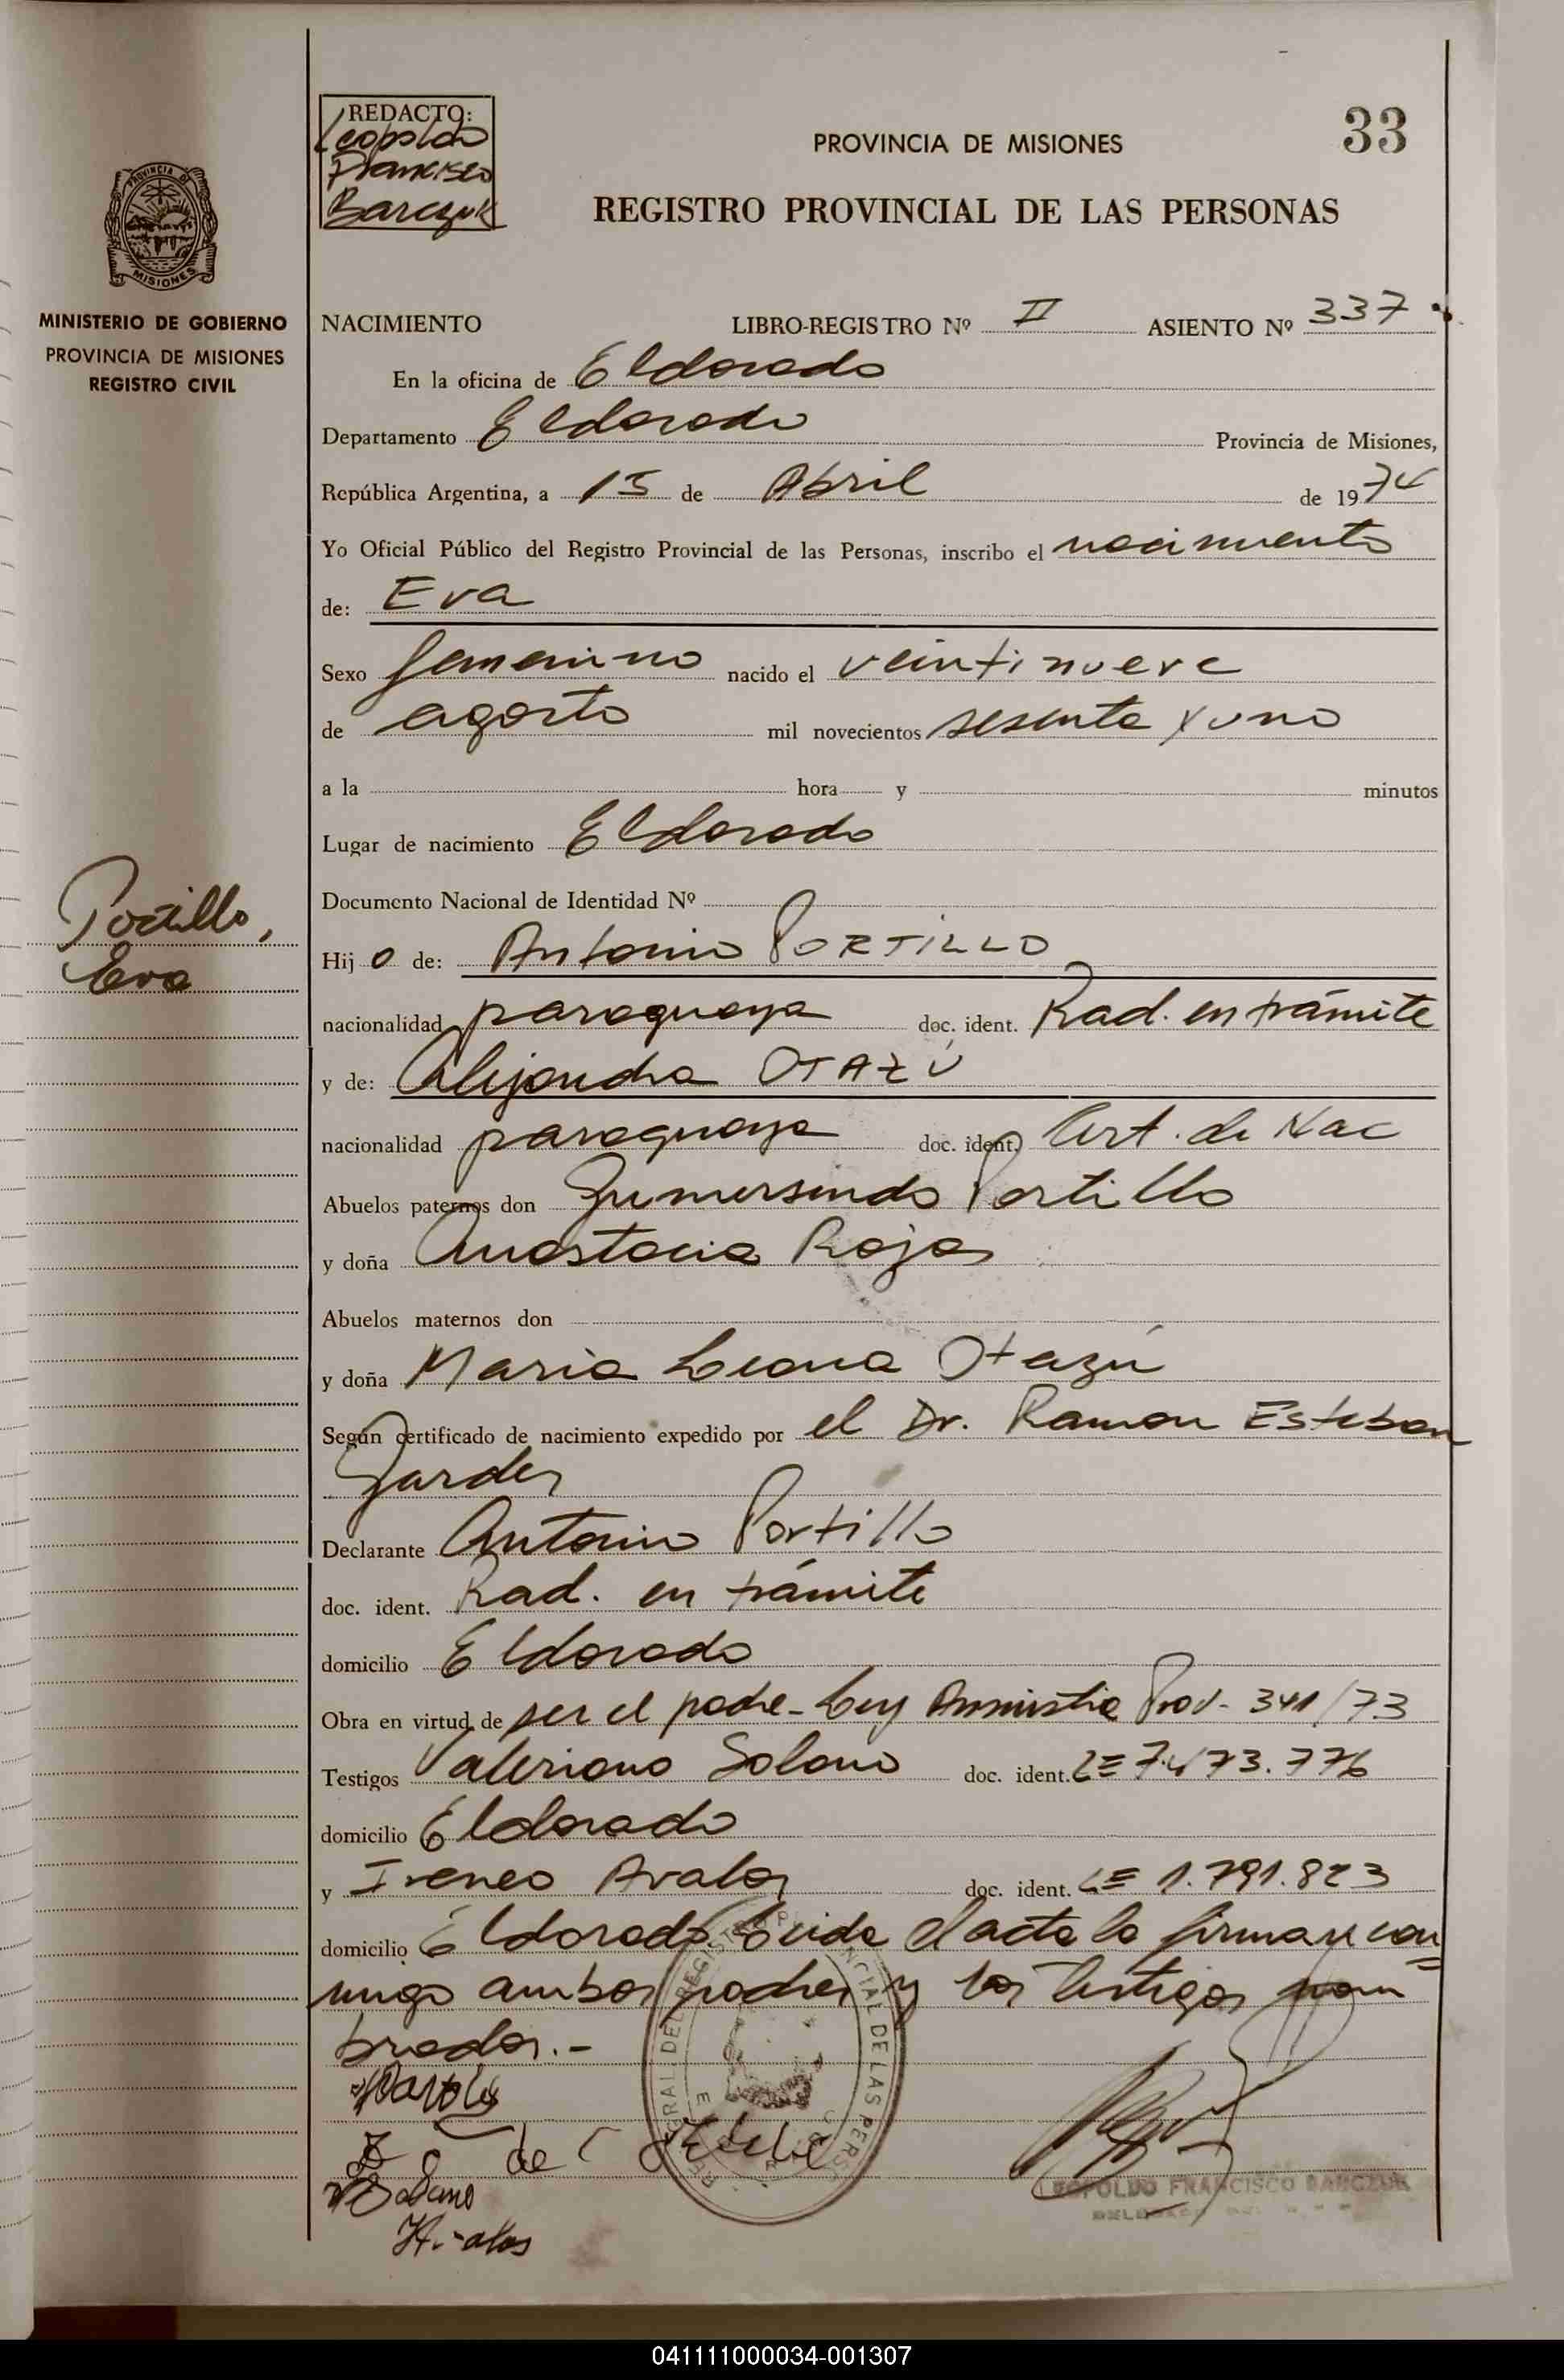 REDACTO:
Leopoldo
Francisco
Barczuk
PROVINCIA DE MISIONES
33
REGISTRO PROVINCIAL DE LAS PERSONAS
PROVINCIA DE
MISIONES
MINISTERIO DE GOBIERNO
PROVINCIA DE MISIONES
REGISTRO CIVIL
NACIMIENTO LIBRO-REGISTRO Nº II ASIENTO Nº 337
En la oficina de Eldorado
Departamento Eldorado Provincia de Misiones,
República Argentina, a 15 de Abril de 1974
Yo Oficial Público del Registro Provincial de las Personas, inscribo el nacimiento
de: Eva
Sexo femenino nacido el veintinueve
de agosto mil novecientos sesenta y uno
a la hora y minutos
Lugar de nacimiento Eldorado
Documento Nacional de Identidad Nº
Portillo,
Eva
Hij o de: Antonio PORTILLO
nacionalidad paraguaya doc. ident. Rad. en trámite
y de: Alejandra OTAZÚ
nacionalidad paraguaya doc. ident. Cert. de Nac
Abuelos paternos don Gumersindo Portillo
y doña Anastacia Rojas
Abuelos maternos don
y doña Maria Leona Otazú
Según certificado de nacimiento expedido por el Dr. Ramon Esteban
Gardes
Declarante Antonio Portillo
doc. ident. Rad. en trámite
domicilio Eldorado
Obra en virtud de ser el padre - Ley Amnistia Prov. 341/73
Testigos Valeriano Solano doc. ident. LE 7.473.776
domicilio Eldorado
y Ireneo Avalos doc. ident. LE 1.791.823
domicilio Eldorado Leida el acta la firman con=
migo ambos padres y los testigos nom
brados.-
de
Solano
LEOPOLDO FRANCISCO BARCZUK
041111000034-001307